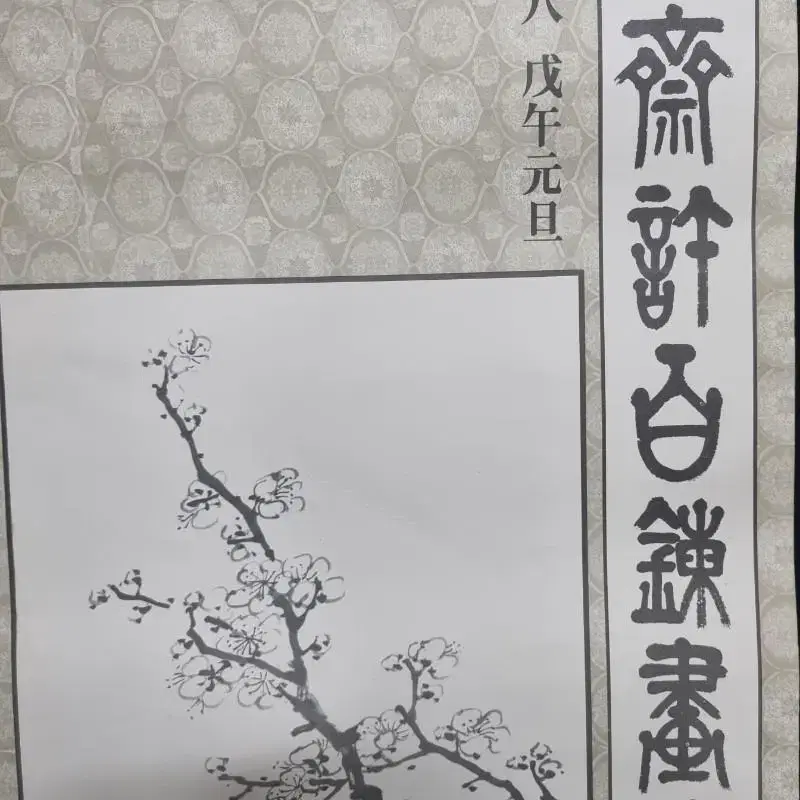 齋許百鍊畫
戊午元旦